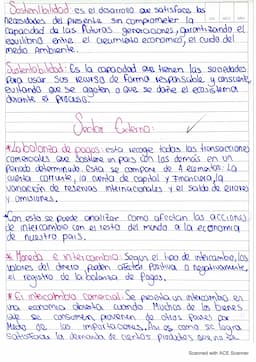 Sostenibilidad: es el desarrollo que satisfaces las
necesidades del presente sin comprometer la
capacidad de las futuras generaciones, garantizando el
equilibrio entre el crecimiento economico, el cuido del
medio Ambiente.
Sustentabilidad: Es la capacidad que tienen las sociedades
para usar sus recursos de forma responsable y consciente,
evitando que se agoten o que se dañe el ecosistema
durante el proceso.
Sector Externo:
*La balanza de pagos: esta recoge todas las transacciones
comerciales que sostiene un país con los demás en un
periodo determinado. Esta se compone de 4 elementos: La
cuenta corriente, la cuenta de capital y Financiera, la
variación de reservas internacionales y el saldo de errores
y omisiones.
*Con esta se puede analizar como afectan las acciones
de intercambio con el resto del mundo a la economía
de nuestro país.
* Moneda e intercambio: Segun el tipo de intercambio, los
valores del dinero pueden afectar positiva o negativamente,
el registro de la balanza de Pagos.
* El intercambio comercial: Se presenta un intercambio en
una economia abierta cuando Muchos de los bienes
que se consumen provienen de otros Países por
Medio de las importaciones. Asi es como se logra
satisfacer la demanda de ciertos productos que no
Scanned with ACE Scanner